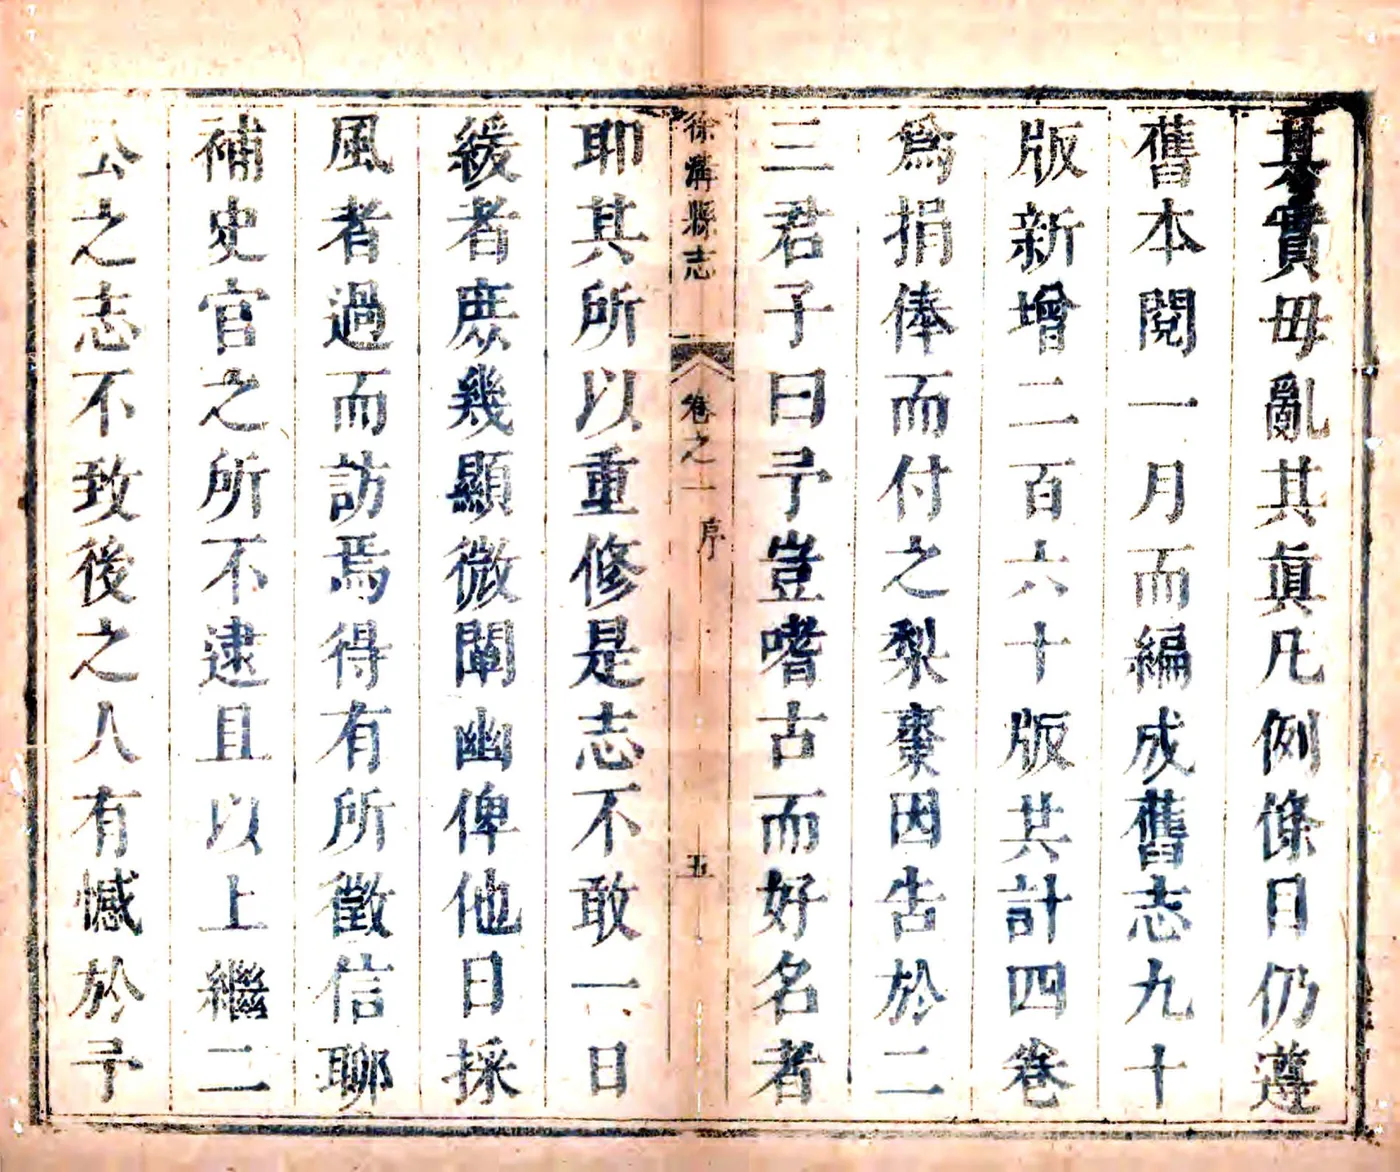 其實毋亂其眞凡例條目仍遵
舊本閱一月而編成舊志九十
版新增二百六十版共計四卷
爲捐俸而付之梨棗因告於二
三君子曰予豈嗜古而好名者
徐溝縣志
卷之一
序
五
耶其所以重修是志不敢一日
緩者庶幾顯微闡幽俾他日採
風者過而訪焉得有所徵信聊
補史官之所不逮且以上繼二
公之志不致後之人有憾於予